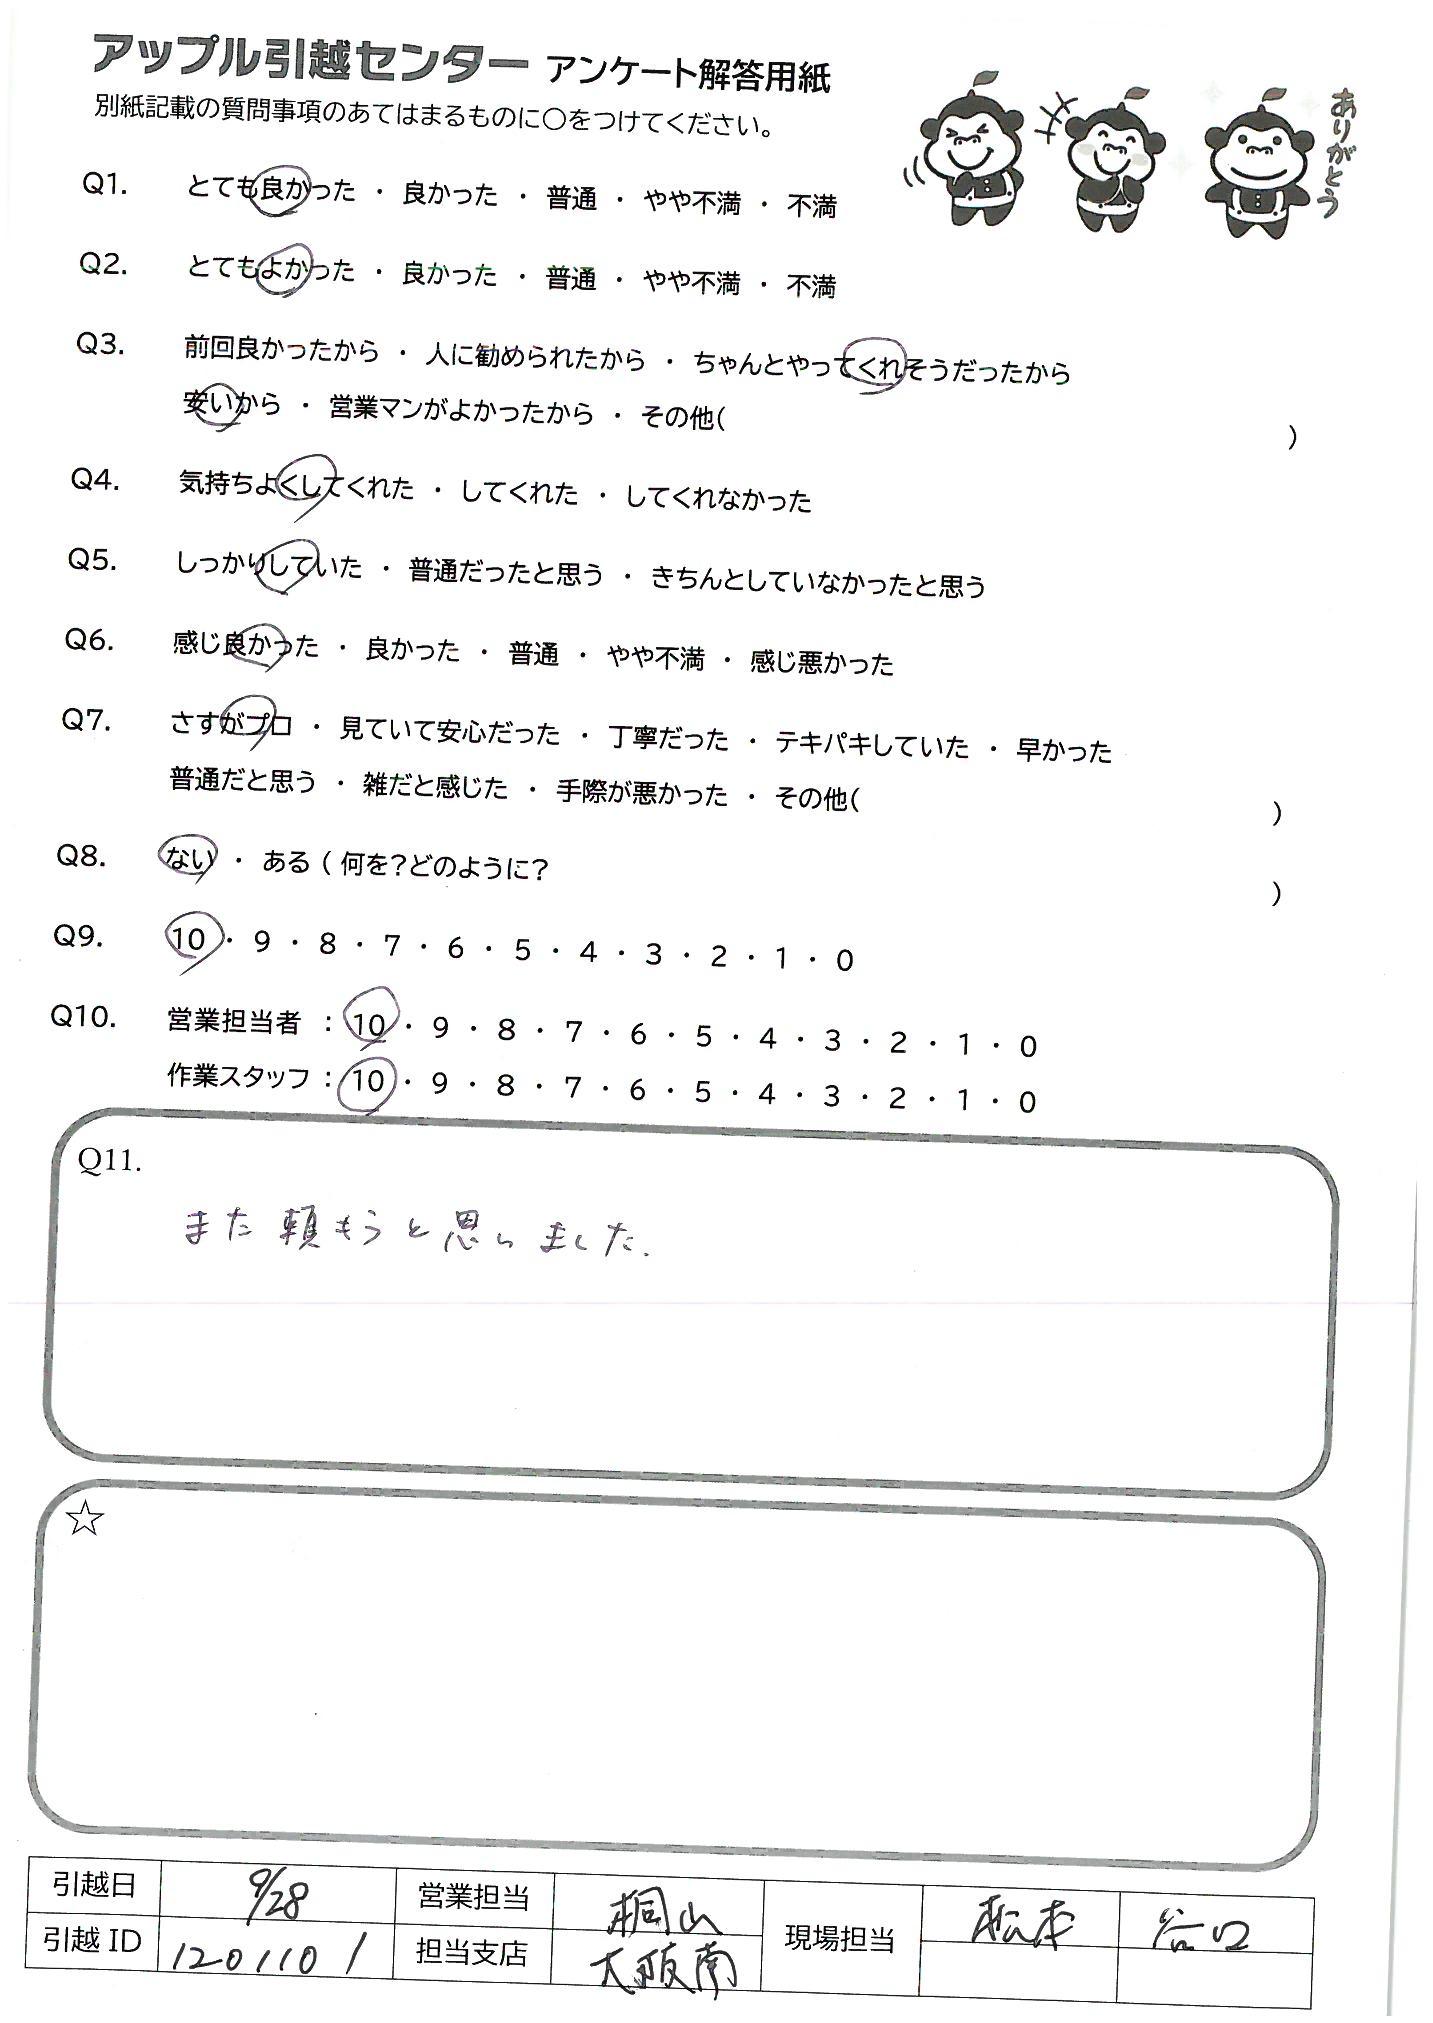 アップル引越センター アンケート解答用紙
別紙記載の質問事項のあてはまるものに○をつけてください。
ありがとう
Q1. とても良かった ・ 良かった ・ 普通 ・ やや不満 ・ 不満
Q2. とてもよかった ・ 良かった ・ 普通 ・ やや不満 ・ 不満
Q3. 前回良かったから ・ 人に勧められたから ・ ちゃんとやってくれそうだったから
安いから ・ 営業マンがよかったから ・ その他( )
Q4. 気持ちよくしてくれた ・ してくれた ・ してくれなかった
Q5. しっかりしていた ・ 普通だったと思う ・ きちんとしていなかったと思う
Q6. 感じ良かった ・ 良かった ・ 普通 ・ やや不満 ・ 感じ悪かった
Q7. さすがプロ ・ 見ていて安心だった ・ 丁寧だった ・ テキパキしていた ・ 早かった
普通だと思う ・ 雑だと感じた ・ 手際が悪かった ・ その他( )
Q8. ない ・ ある ( 何を?どのように? )
Q9. 10 ・ 9 ・ 8 ・ 7 ・ 6 ・ 5 ・ 4 ・ 3 ・ 2 ・ 1 ・ 0
Q10. 営業担当者 : 10 ・ 9 ・ 8 ・ 7 ・ 6 ・ 5 ・ 4 ・ 3 ・ 2 ・ 1 ・ 0
作業スタッフ : 10 ・ 9 ・ 8 ・ 7 ・ 6 ・ 5 ・ 4 ・ 3 ・ 2 ・ 1 ・ 0
Q11.
また頼もうと思いました.
☆
引越日 9/28 営業担当 桐山 現場担当 松本 谷口
引越ID 1201101 担当支店 大阪南